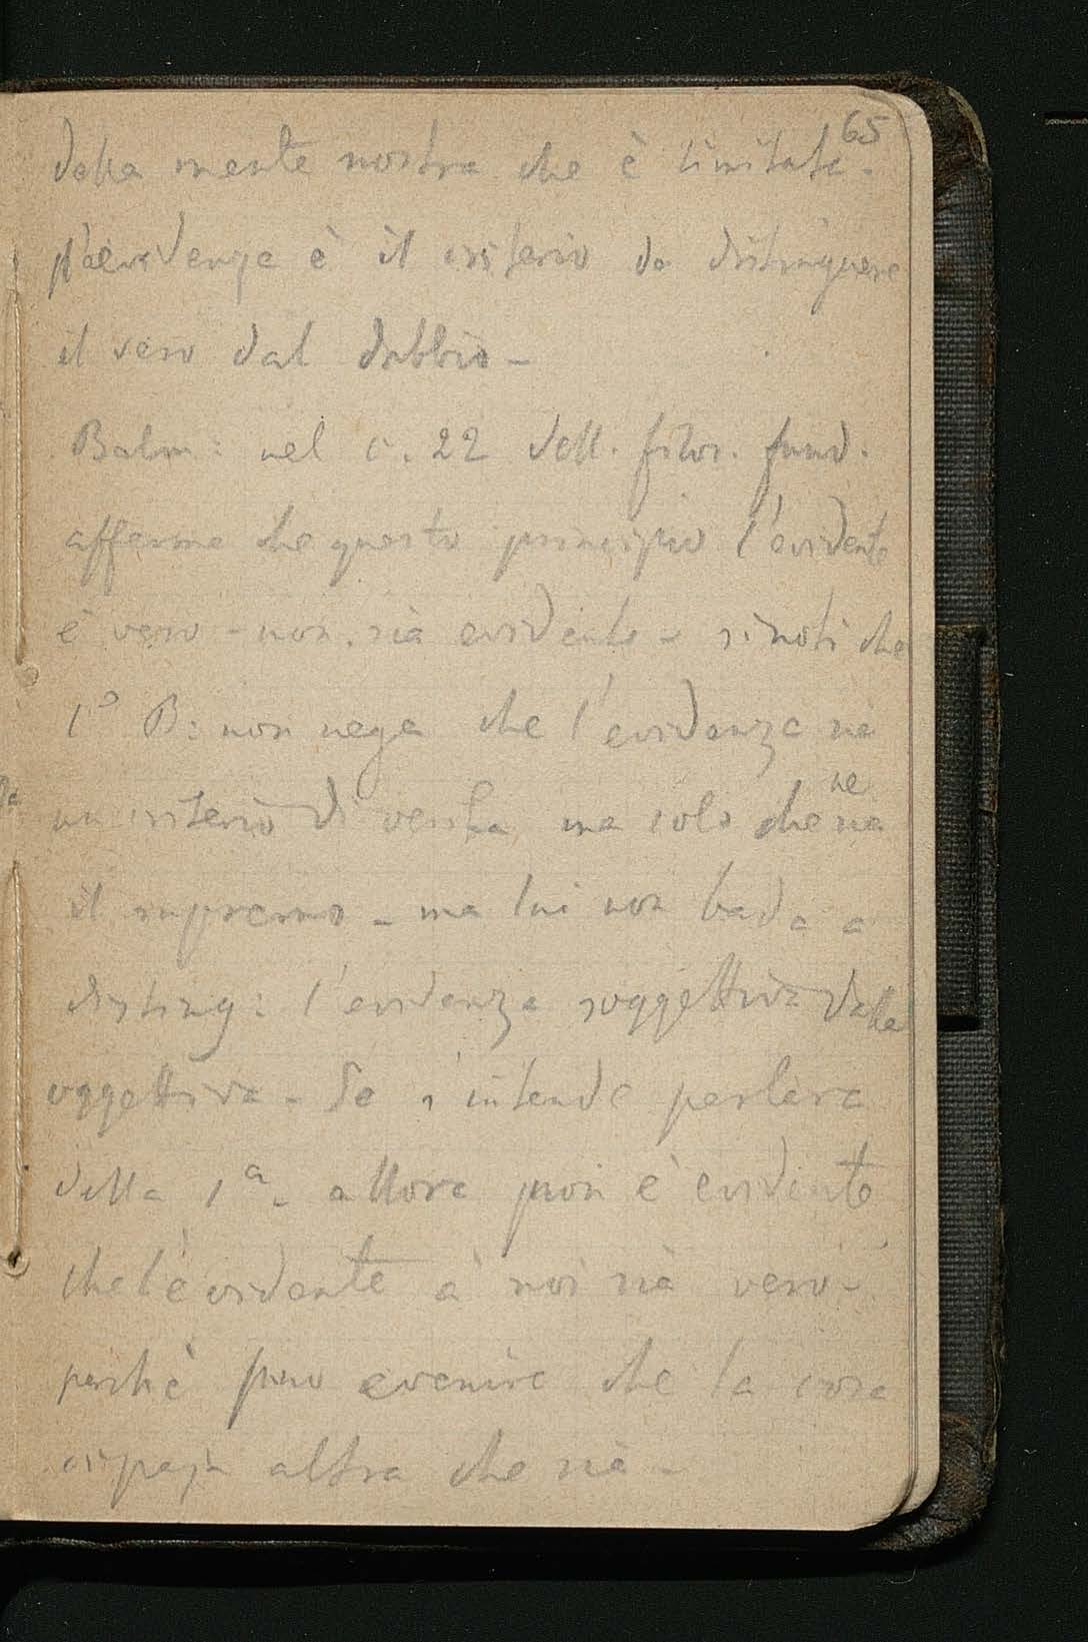 65
della mente nostra che è limitata.
l'evidenza è il criterio da distinguere
il vero dal dubbio -
Balm: nel c. 22 dell. filos. fund.
afferma che questo principio l'evidente
è vero - non sia evidente - si noti che
1° B: non nega che l'evidenza sia
un criterio di verità ma solo che ne sia
il supremo - ma lui non bada a
disting: l'evidenza soggettiva dalla
oggettiva - Se s'intende parlare
della 1ª - allora non è evidente
che l'evidente a noi sia vero -
perchè può avenire che la cosa
ci paja altra che sia -